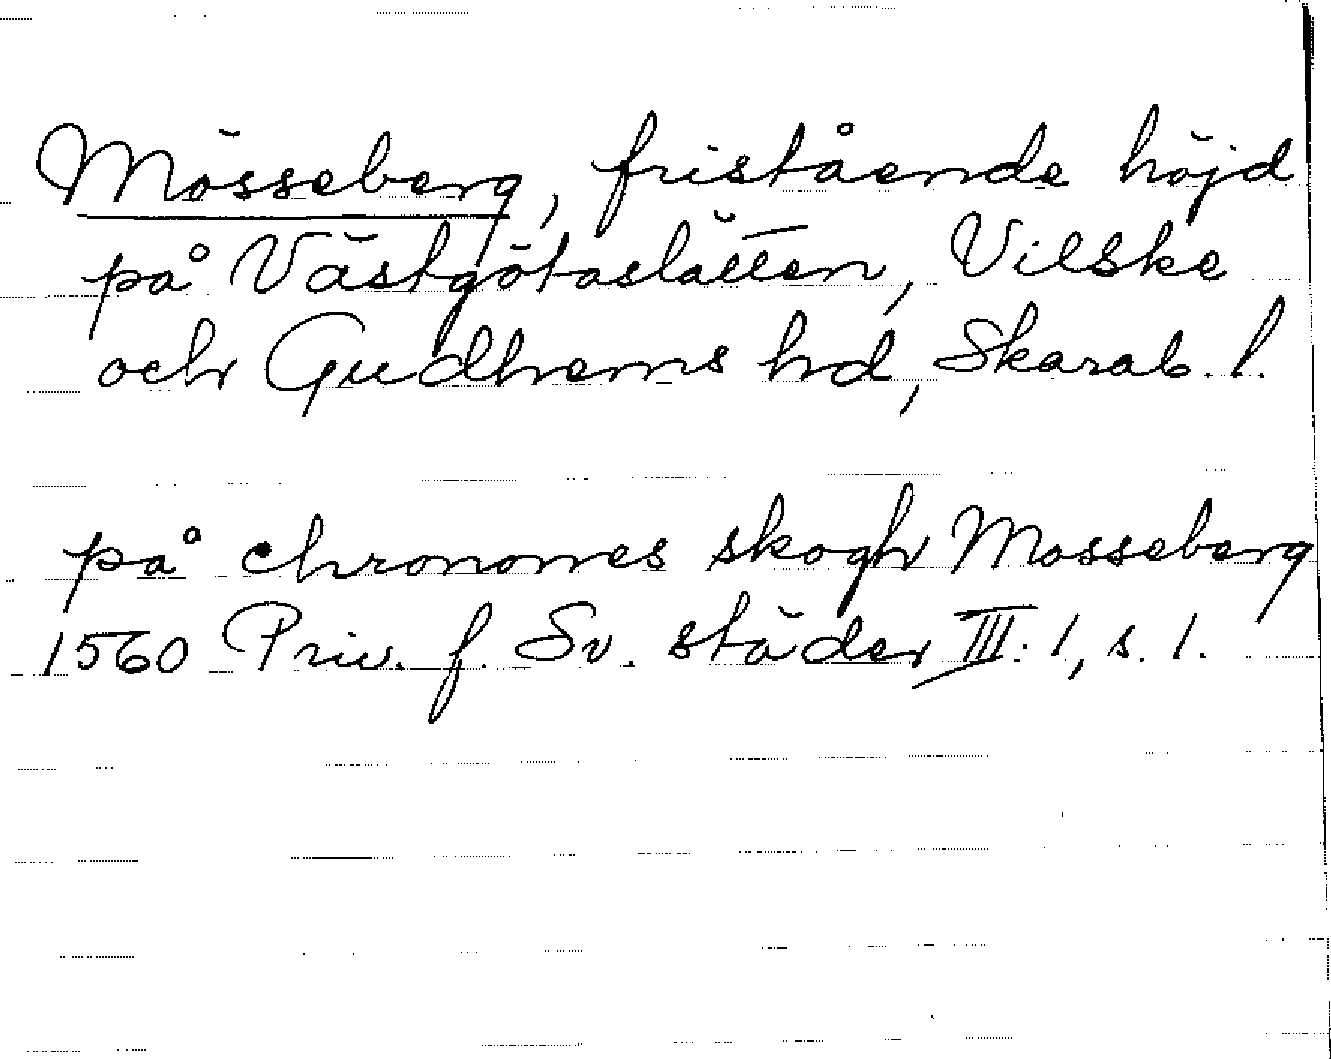 Mösseberg, fristående höjd
på Västgötaslätten, Vilske
och Gudhems hd, Skarab. l.
på chronones skogh Mosseberg
1560 Priv. f. Sv. städer III: 1, s. 1.